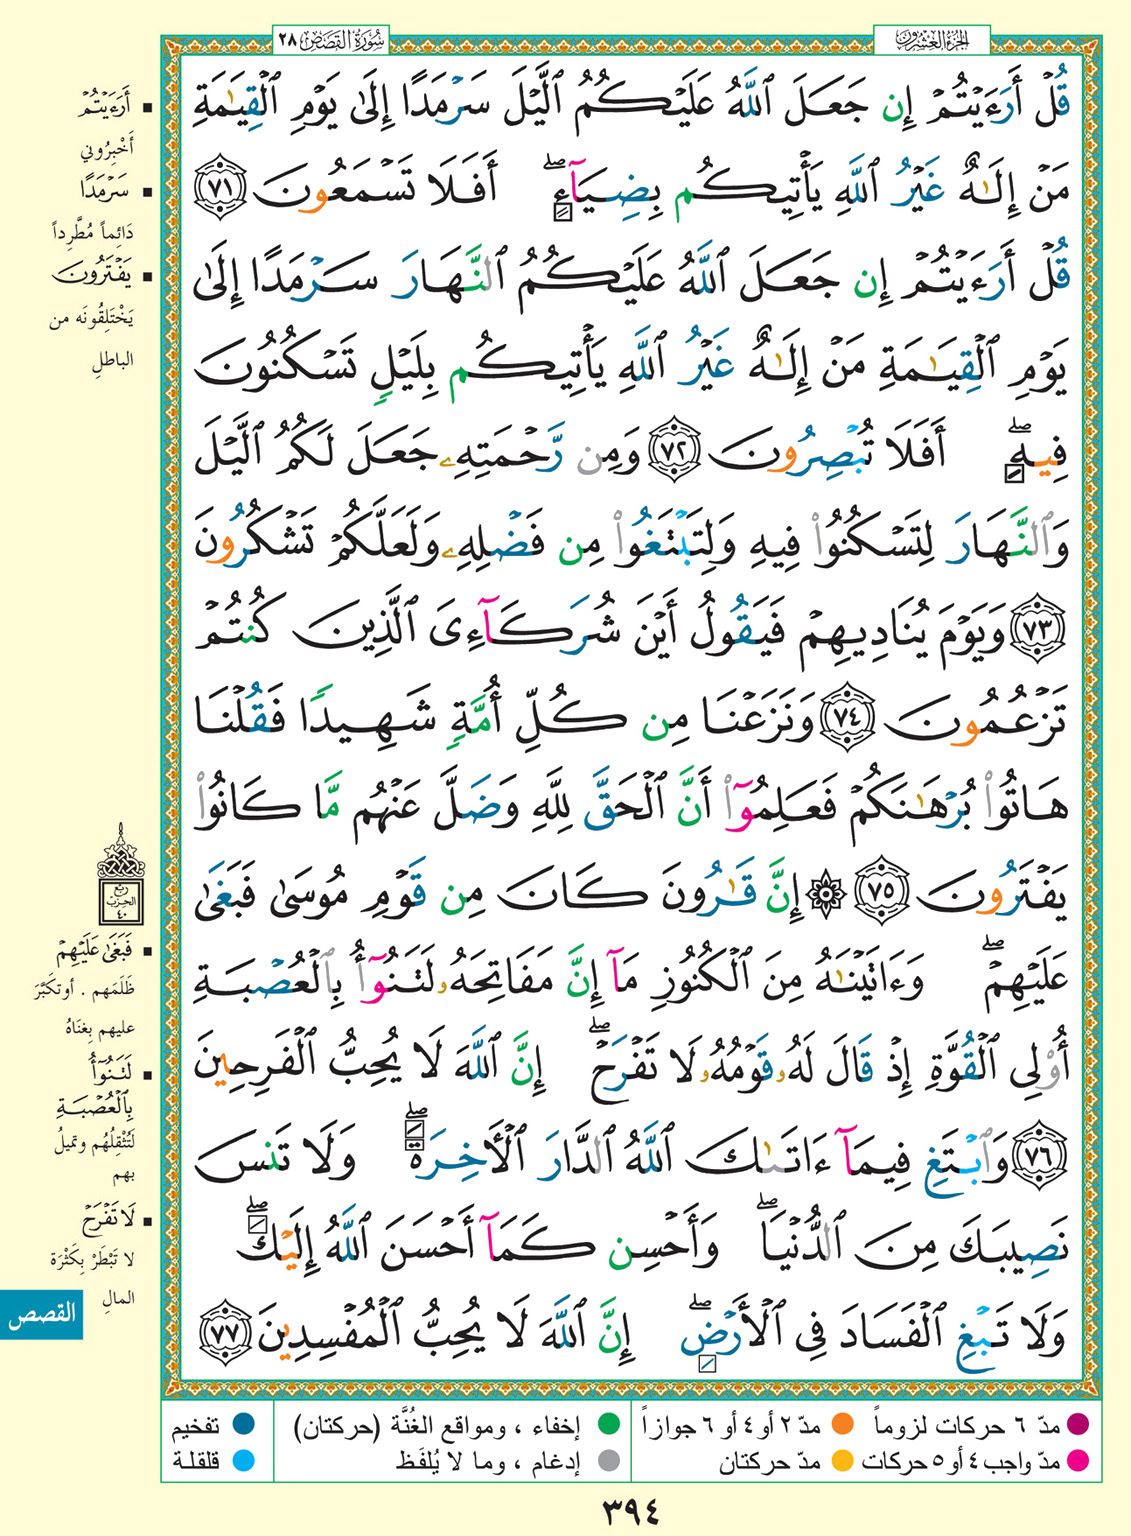 سُورَةُ القَصَصِ ٢٨
الجزء العشرون
قُلْ أَرَءَيْتُمْ إِن جَعَلَ ٱللَّهُ عَلَيْكُمُ ٱلَّيْلَ سَرْمَدًا إِلَىٰ يَوْمِ ٱلْقِيَٰمَةِ
مَنْ إِلَٰهٌ غَيْرُ ٱللَّهِ يَأْتِيكُم بِضِيَآءٍ ۖ أَفَلَا تَسْمَعُونَ ٧١
قُلْ أَرَءَيْتُمْ إِن جَعَلَ ٱللَّهُ عَلَيْكُمُ ٱلنَّهَارَ سَرْمَدًا إِلَىٰ
يَوْمِ ٱلْقِيَٰمَةِ مَنْ إِلَٰهٌ غَيْرُ ٱللَّهِ يَأْتِيكُم بِلَيْلٍ تَسْكُنُونَ
فِيهِ ۖ أَفَلَا تُبْصِرُونَ ٧٢ وَمِن رَّحْمَتِهِۦ جَعَلَ لَكُمُ ٱلَّيْلَ
وَٱلنَّهَارَ لِتَسْكُنُوا۟ فِيهِ وَلِتَبْتَغُوا۟ مِن فَضْلِهِۦ وَلَعَلَّكُمْ تَشْكُرُونَ
٧٣ وَيَوْمَ يُنَادِيهِمْ فَيَقُولُ أَيْنَ شُرَكَآءِىَ ٱلَّذِينَ كُنتُمْ
تَزْعُمُونَ ٧٤ وَنَزَعْنَا مِن كُلِّ أُمَّةٍ شَهِيدًا فَقُلْنَا
هَاتُوا۟ بُرْهَٰنَكُمْ فَعَلِمُوٓا۟ أَنَّ ٱلْحَقَّ لِلَّهِ وَضَلَّ عَنْهُم مَّا كَانُوا۟
يَفْتَرُونَ ٧٥ ۞ إِنَّ قَٰرُونَ كَانَ مِن قَوْمِ مُوسَىٰ فَبَغَىٰ
عَلَيْهِمْ ۖ وَءَاتَيْنَٰهُ مِنَ ٱلْكُنُوزِ مَآ إِنَّ مَفَاتِحَهُۥ لَتَنُوٓأُ بِٱلْعُصْبَةِ
أُو۟لِى ٱلْقُوَّةِ إِذْ قَالَ لَهُۥ قَوْمُهُۥ لَا تَفْرَحْ ۖ إِنَّ ٱللَّهَ لَا يُحِبُّ ٱلْفَرِحِينَ
٧٦ وَٱبْتَغِ فِيمَآ ءَاتَىٰكَ ٱللَّهُ ٱلدَّارَ ٱلْأَخِرَةَ ۖ وَلَا تَنسَ
نَصِيبَكَ مِنَ ٱلدُّنْيَا ۖ وَأَحْسِن كَمَآ أَحْسَنَ ٱللَّهُ إِلَيْكَ ۖ
وَلَا تَبْغِ ٱلْفَسَادَ فِى ٱلْأَرْضِ ۖ إِنَّ ٱللَّهَ لَا يُحِبُّ ٱلْمُفْسِدِينَ ٧٧
أَرَءَيْتُمْ
أَخْبِرُوني
سَرْمَدًا
دَائِماً مُطَّرِداً
يَفْتَرُونَ
يَخْتَلِقُونَه من
الباطلِ
ربع
الحزب
٤٠
فَبَغَىٰ عَلَيْهِمْ
ظَلَمَهم . أو تكَبَّرَ
عليهم بِغِنَاهُ
لَتَنُوٓأُ
بِٱلْعُصْبَةِ
لَتُثْقِلُهُم وتميلُ
بهم
لَا تَفْرَحْ
لا تَبْطَرْ بِكَثْرَة
المالِ
القصص
مدّ ٦ حركات لزوماً
مدّ ٢ أو ٤ أو ٦ جوازاً
إخفاء ، ومواقع الغُنَّة (حركتان)
تفخيم
مدّ واجب ٤ أو ٥ حركات
مدّ حركتان
إدغام ، وما لا يُلفَظ
قلقلة
٣٩٤